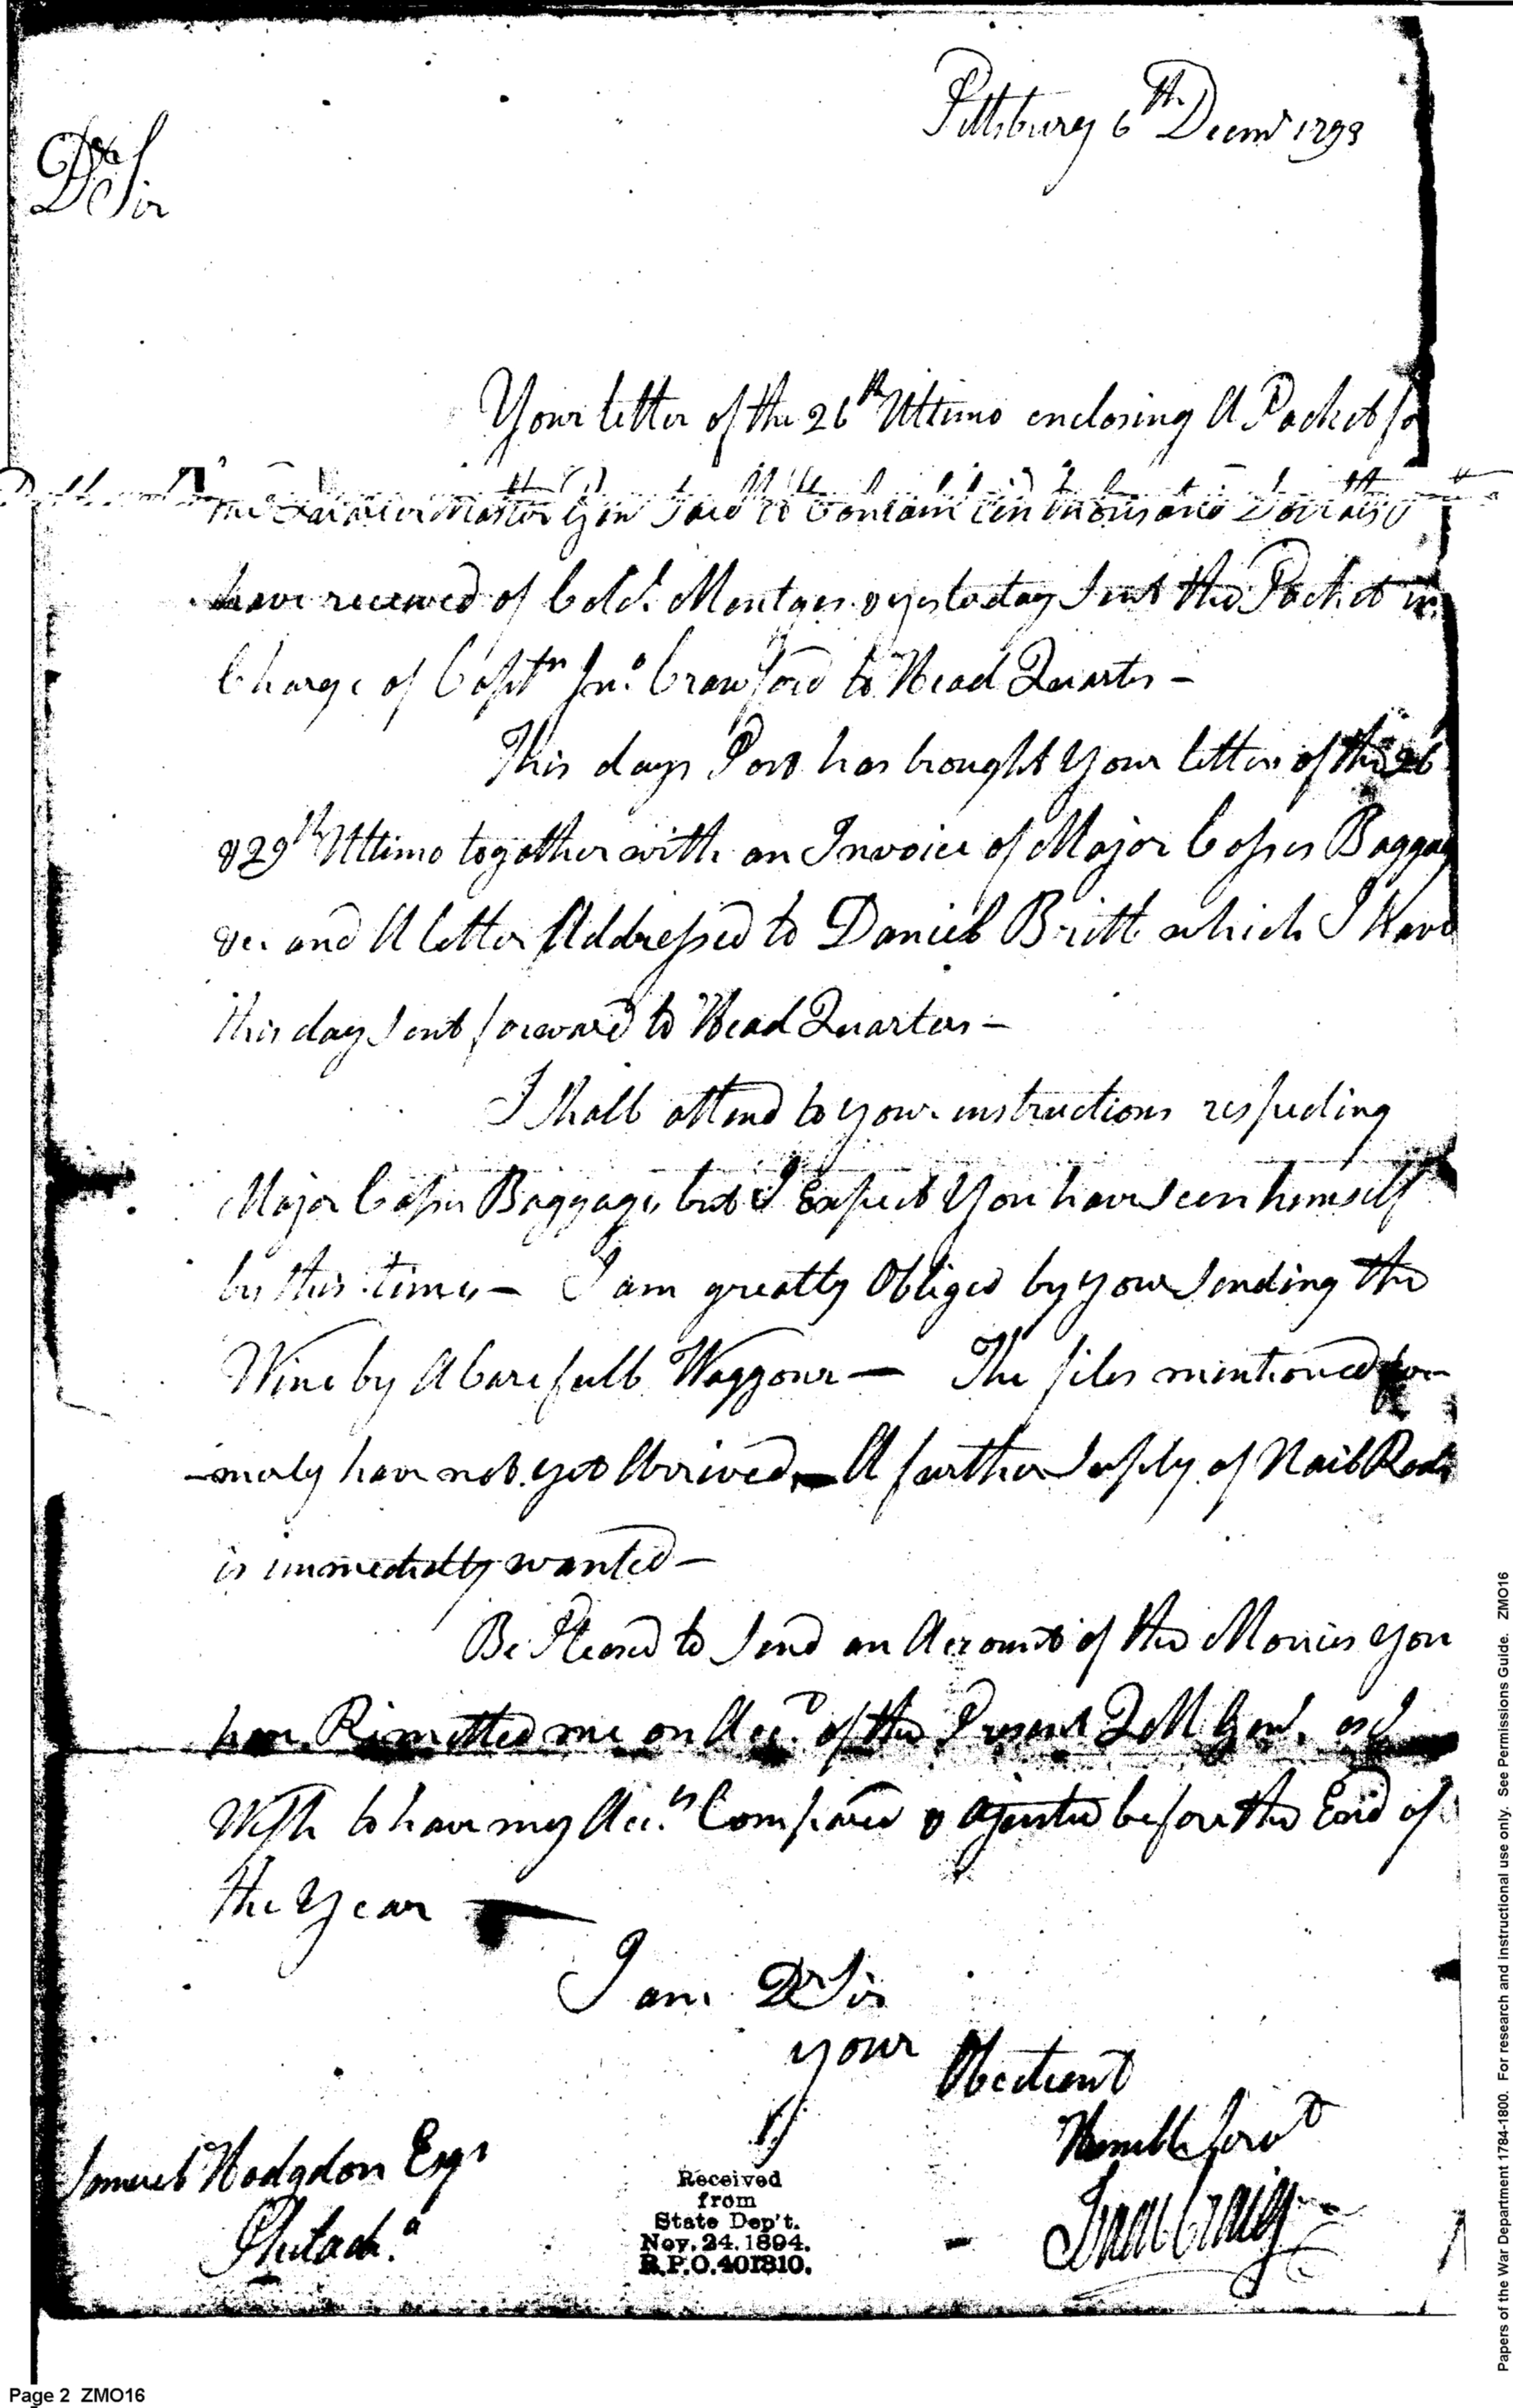 Pittsburg 6th Decmr 1793
Dr Sir
Your letter of the 26th Ultimo enclosing A Packet fo
the Quarter Master Gen Said to Contain ten thousand Dollars I
have received of Cold. Montger & yesterday Sent the Packet in
Charge of Captn Jno. Crawford to Head Quarters —
This days Post has brought Your letters of the 26
& 29th Ultimo together with an Invoice of Major Casses Baggag
&c. and A letter Addressed to Daniel Britt which I Have
this day Sent forward to Head Quarters —
I Shall attend to your instructions respecting
Major Baggage, but I Expect You have Seen himself
by this time, — I am greatly Obliged by your Sending the
Wine by A Carefull Waggoner — The files mentioned for-
-merly have not yet Arrived, — A further Suply of Nail Rods
is immediatly wanted —
Be Pleased to Send an Account of the Monies you
have Remitted me on Acct. of the Present Q M Genl. as I
Wish to have my Accts. Compared & ajusted before the End of
the Year —
I am Dr Sir
your
Obedient
Humble Servt
Isaac Craig
Samuel Hodgdon Esqr
Philada.
Received
from
State Dep't.
Nov. 24. 1894.
R.P.O. 401310.
Papers of the War Department 1784-1800. For research and instructional use only. See Permissions Guide. ZMO16
Page 2 ZMO16